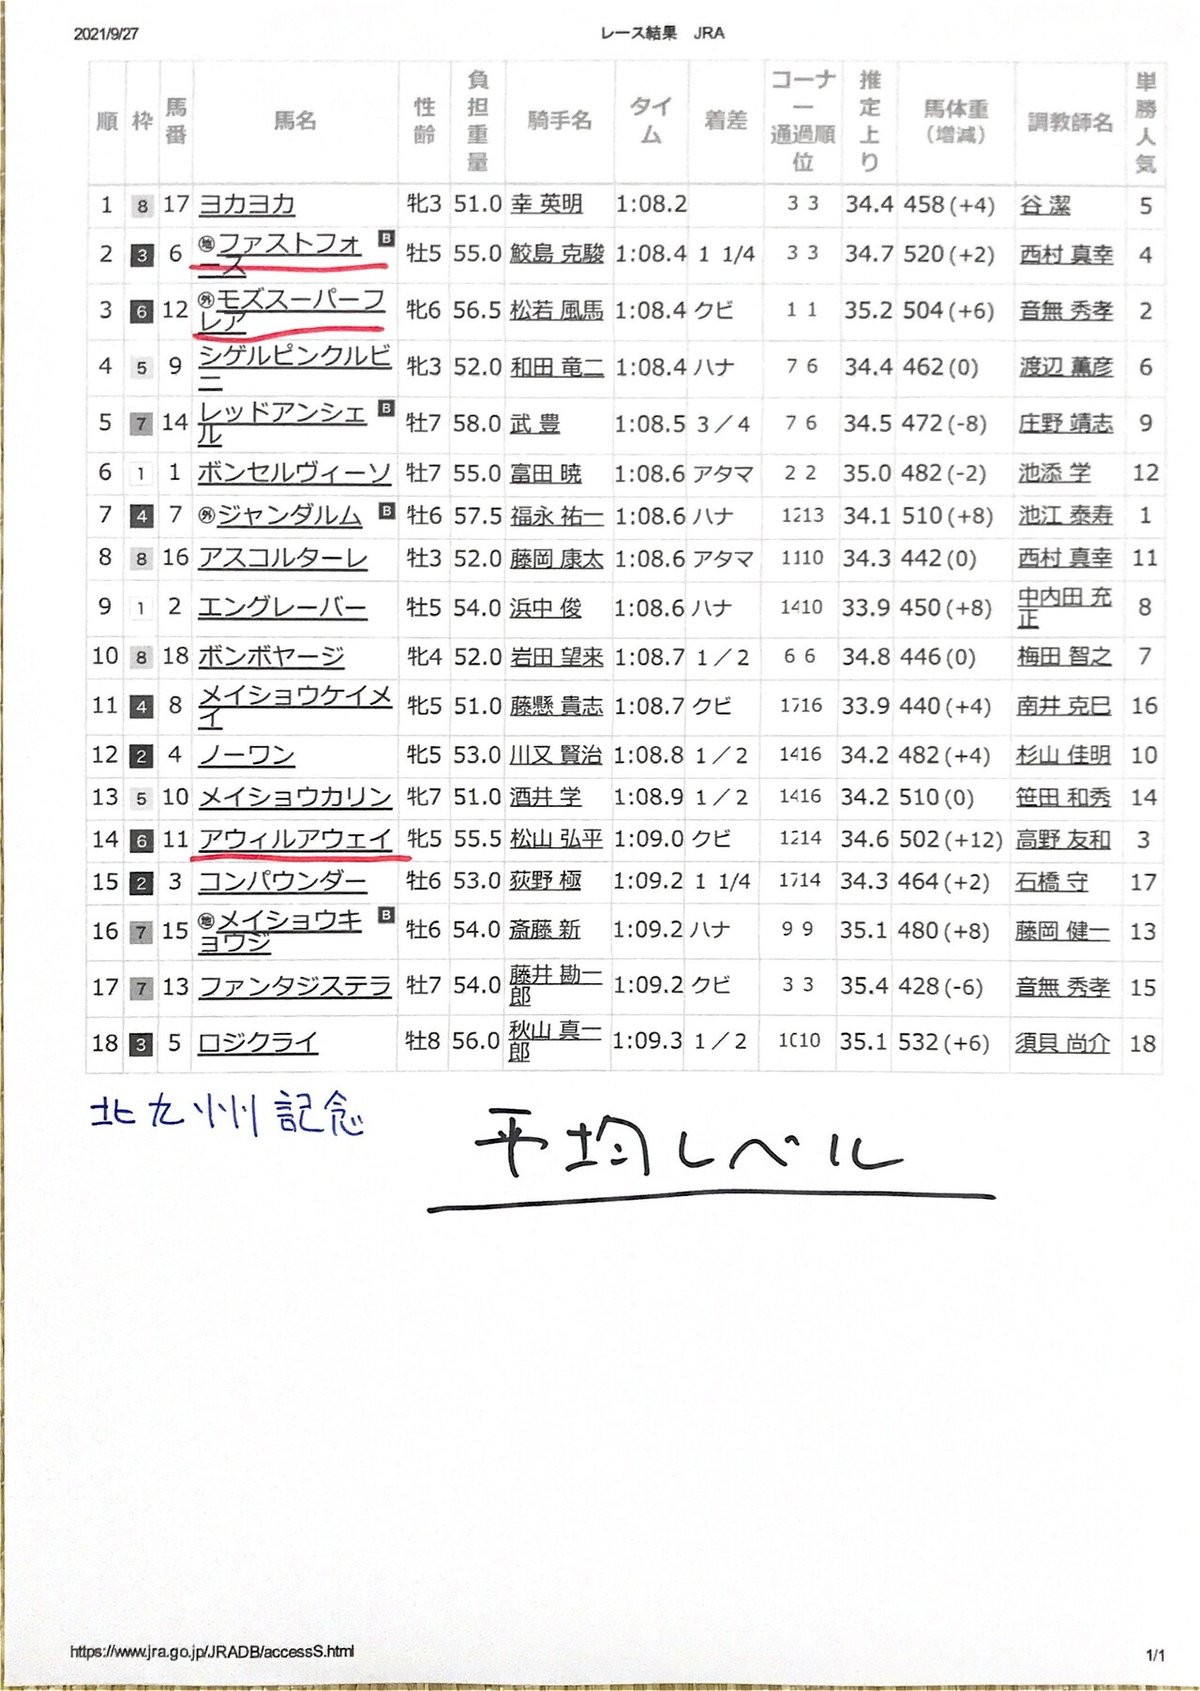 2021/9/27 レース結果 JRA
順 枠 馬番 馬名 性齢 負担重量 騎手名 タイム 着差 コーナー通過順位 推定上り 馬体重(増減) 調教師名 単勝人気
1 8 17 ヨカヨカ 牝3 51.0 幸 英明 1:08.2 3 3 34.4 458(+4) 谷 潔 5
2 3 6 地ファストフォース B 牡5 55.0 鮫島 克駿 1:08.4 1 1/4 3 3 34.7 520(+2) 西村 真幸 4
3 6 12 外モズスーパーフレア 牝6 56.5 松若 風馬 1:08.4 クビ 1 1 35.2 504(+6) 音無 秀孝 2
4 5 9 シゲルピンクルビー 牝3 52.0 和田 竜二 1:08.4 ハナ 7 6 34.4 462(0) 渡辺 薫彦 6
5 7 14 レッドアンシェル B 牡7 58.0 武 豊 1:08.5 3/4 7 6 34.5 472(-8) 庄野 靖志 9
6 1 1 ボンセルヴィーソ 牡7 55.0 富田 暁 1:08.6 アタマ 2 2 35.0 482(-2) 池添 学 12
7 4 7 外ジャンダルム B 牡6 57.5 福永 祐一 1:08.6 ハナ 1213 34.1 510(+8) 池江 泰寿 1
8 8 16 アスコルターレ 牡3 52.0 藤岡 康太 1:08.6 アタマ 1110 34.3 442(0) 西村 真幸 11
9 1 2 エングレーバー 牡5 54.0 浜中 俊 1:08.6 ハナ 1410 33.9 450(+8) 中内田 充正 8
10 8 18 ボンボヤージ 牝4 52.0 岩田 望来 1:08.7 1/2 6 6 34.8 446(0) 梅田 智之 7
11 4 8 メイショウケイメイ 牝5 51.0 藤懸 貴志 1:08.7 クビ 1716 33.9 440(+4) 南井 克巳 16
12 2 4 ノーワン 牝5 53.0 川又 賢治 1:08.8 1/2 1416 34.2 482(+4) 杉山 佳明 10
13 5 10 メイショウカリン 牝7 51.0 酒井 学 1:08.9 1/2 1416 34.2 510(0) 笹田 和秀 14
14 6 11 アウィルアウェイ 牝5 55.5 松山 弘平 1:09.0 クビ 1214 34.6 502(+12) 高野 友和 3
15 2 3 コンパウンダー 牡6 53.0 荻野 極 1:09.2 1 1/4 1714 34.3 464(+2) 石橋 守 17
16 7 15 地メイショウキョウジ B 牡6 54.0 斎藤 新 1:09.2 ハナ 9 9 35.1 480(+8) 藤岡 健一 13
17 7 13 ファンタジステラ 牡7 54.0 藤井 勘一郎 1:09.2 クビ 3 3 35.4 428(-6) 音無 秀孝 15
18 3 5 ロジクライ 牡8 56.0 秋山 真一郎 1:09.3 1/2 1010 35.1 532(+6) 須貝 尚介 18
北九州記念
平均レベル
https://www.jra.go.jp/JRADB/accessS.html 1/1